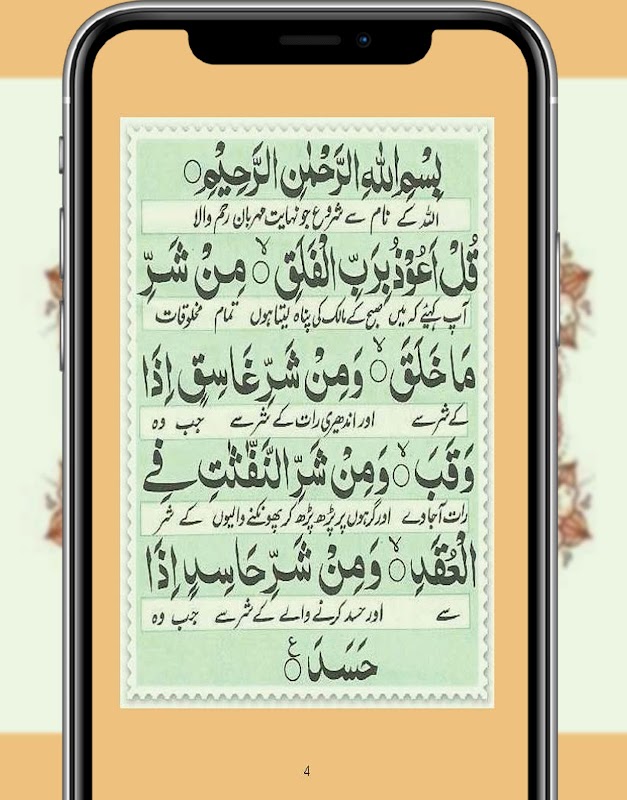 بِسْمِ اللّٰهِ الرَّحْمٰنِ الرَّحِيْمِ ○
اللہ کے نام سے شروع جو نہایت مہربان رحم والا
قُلْ اَعُوْذُ بِرَبِّ الْفَلَقِ ○ۙ مِنْ شَرِّ
آپ کہیئے کہ میں صبح کے مالک کی پناہ لیتا ہوں تمام مخلوقات
مَا خَلَقَ ○ۙ وَمِنْ شَرِّ غَاسِقٍ اِذَا
کے شر سے اور اندھیری رات کے شر سے جب وہ
وَقَبَ ○ۙ وَمِنْ شَرِّ النَّفّٰثٰتِ فِي
رات آجاوے اور گرہوں پر پڑھ پڑھ کر پھونکنے والیوں کے شر
الْعُقَدِ ○ۙ وَمِنْ شَرِّ حَاسِدٍ اِذَا
سے اور حسد کرنے والے کے شر سے جب وہ
حَسَدَ ○ع
4